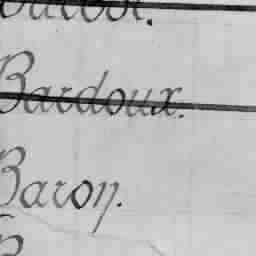 Bardoux.
Baron.